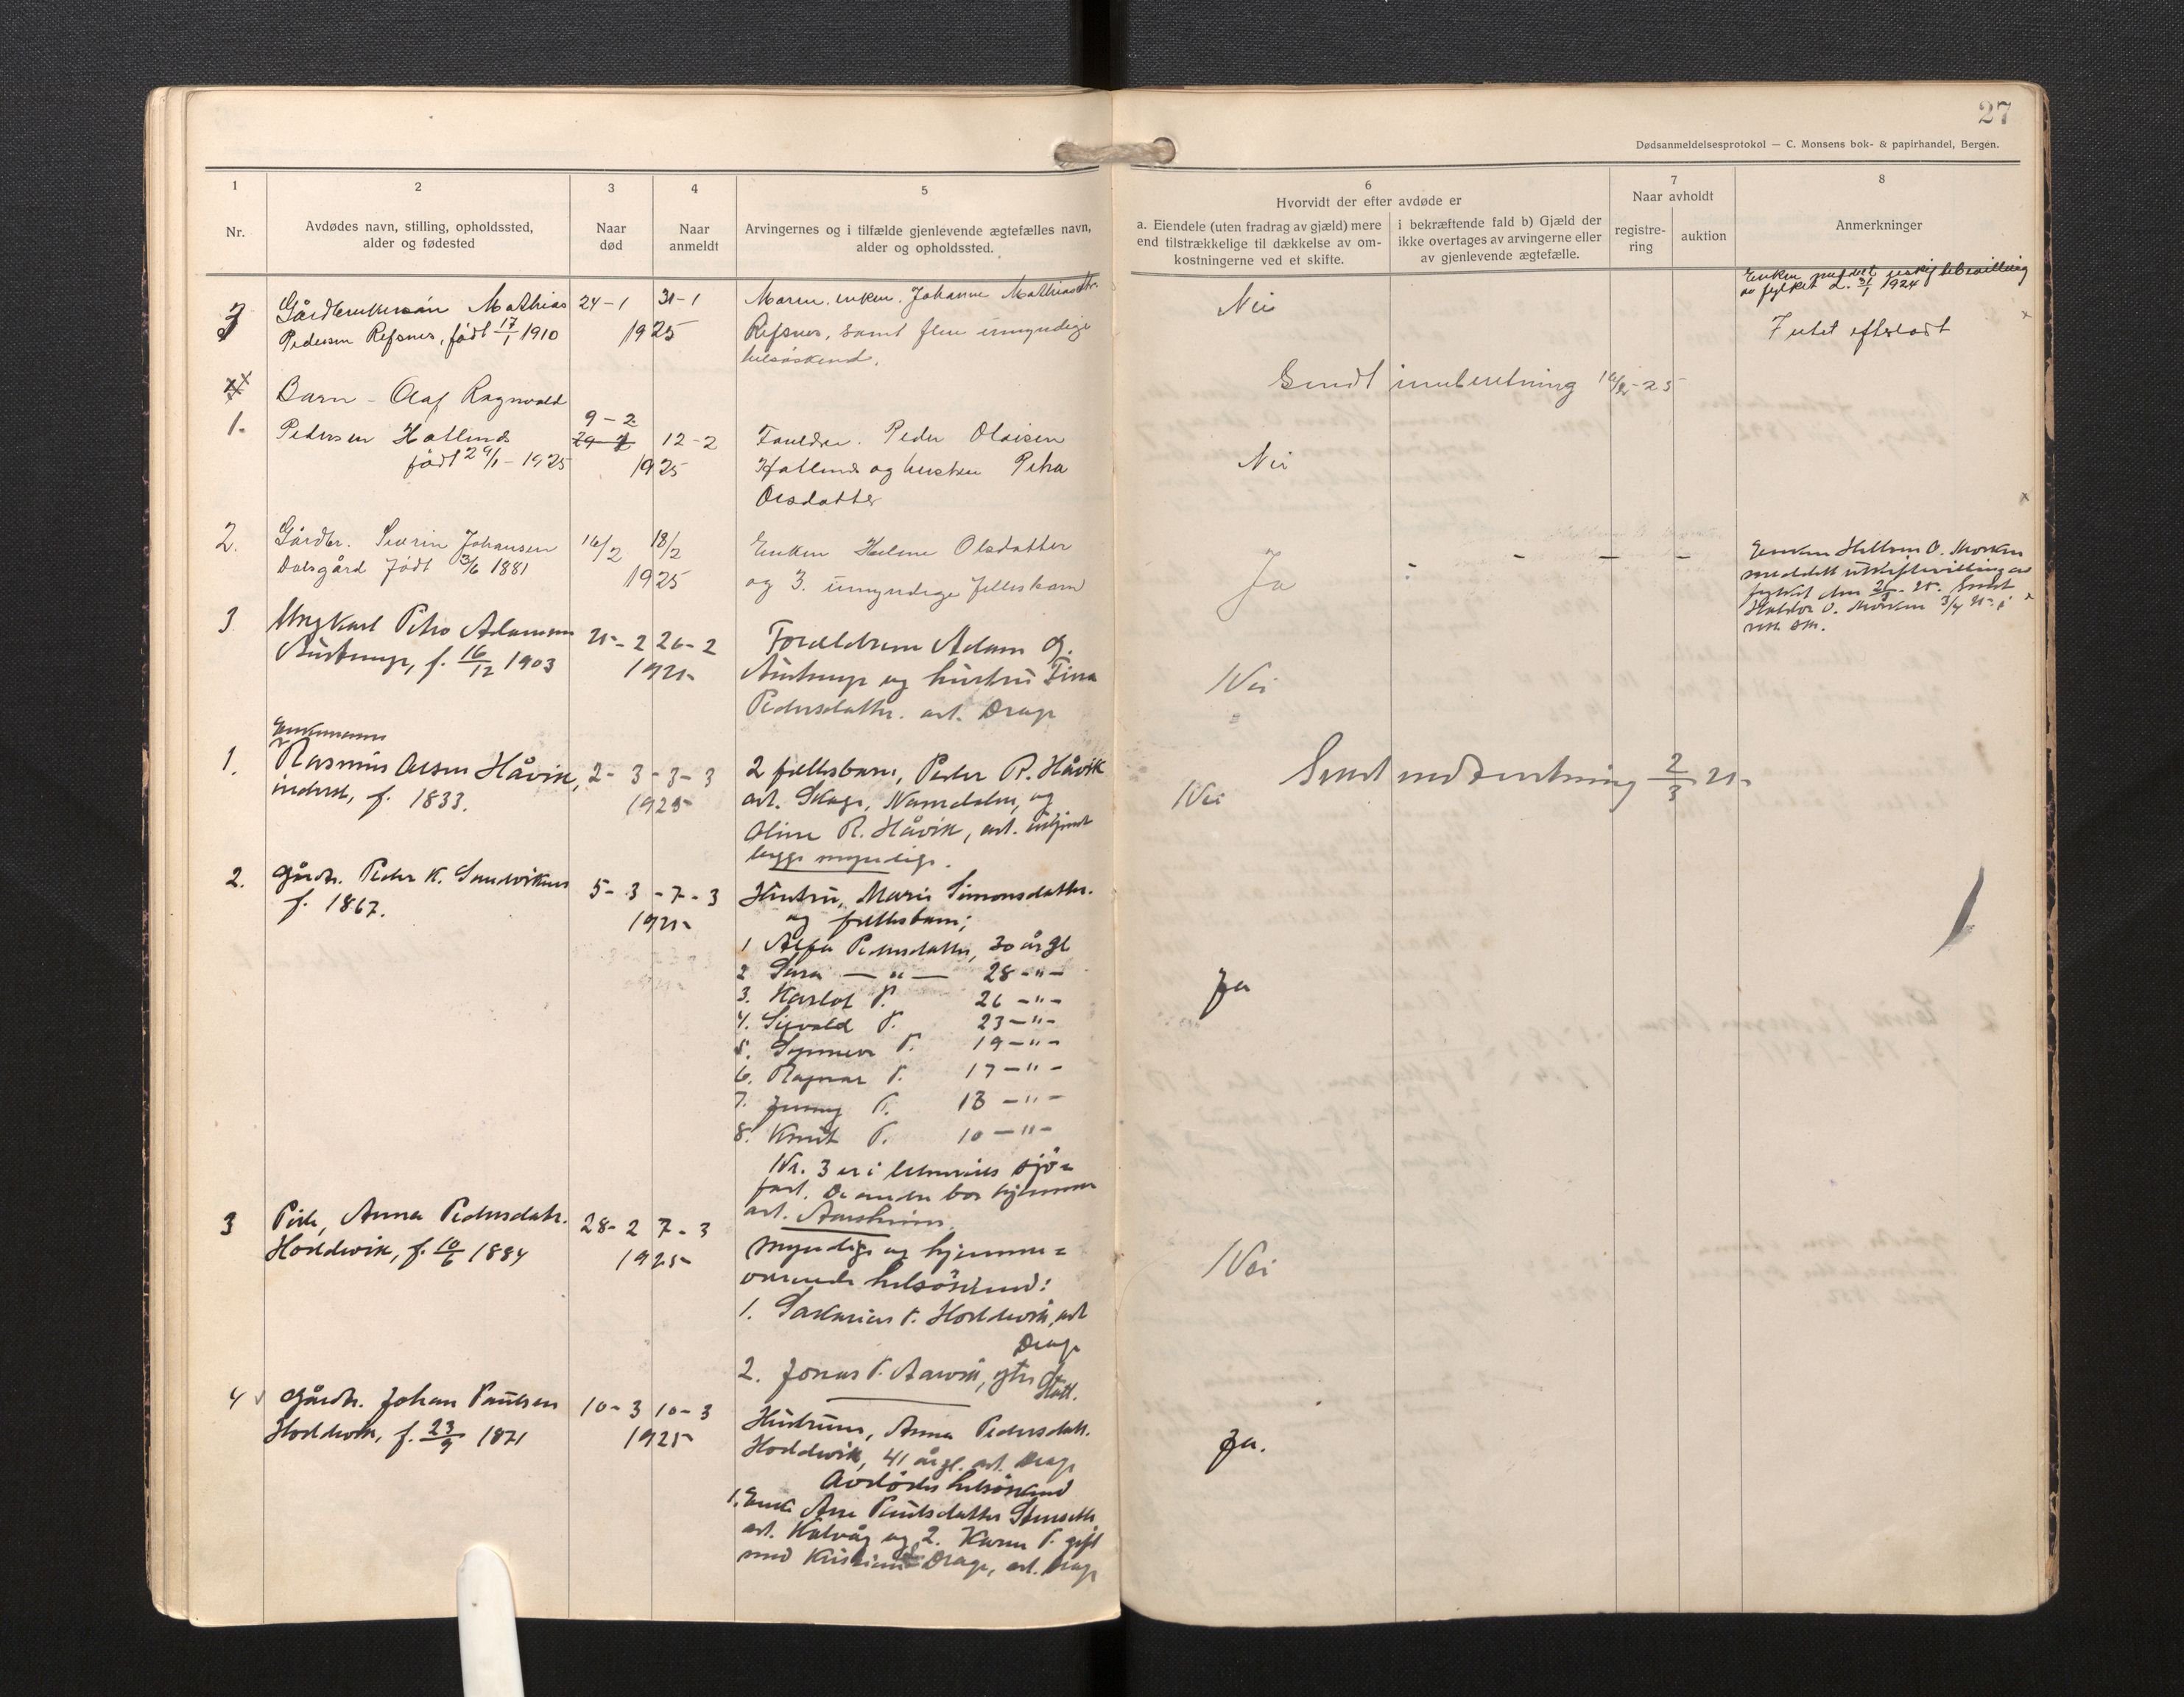 27
Dødsanmeldelsesprotokol — C. Monsens bok- & papirhandel, Bergen.
1
Nr.
2
Avdødes navn, stilling, opholdssted,
alder og fødested
3
Naar
død
4
Naar
anmeldt
5
Arvingernes og i tilfælde gjenlevende ægtefælles navn,
alder og opholdssted.
6
Hvorvidt der efter avdøde er
a. Eiendele (uten fradrag av gjæld) mere
end tilstrækkelige til dækkelse av om-
kostningerne ved et skifte.
i bekræftende fald b) Gjæld der
ikke overtages av arvingerne eller
av gjenlevende ægtefælle.
7
Naar avholdt
registre-
ring
auktion
8
Anmerkninger
3
Mathias
Pedersen Refsnes, født 17/1 1910
24-1
31-1
1925
Moren, enken, Johanne Mathiasdtr.
Refsnes, samt flere umyndige
helsøskend.
Nei
Enken meddelt uskiftebevilling
av fylket d. 31/1 1924
Intet efterladt
Sendt innberetning 16/2-25
1.
Barn - Olaf Ragnvald
Pedersen Hatlenes
født 29/1-1925
9-2
12-2
1925
Foreldre. Peder Olaisen
Hatlenes og hustru Petra
Olsdatter
Nei
2.
Gårdbr. Severin Johansen
Dalsgård født 3/6 1881
16/2
18/2
1925
Enken Helene Olsdatter
og 3. umyndige fellesbarn
Ja
- - -
Enken O.
meddelt
fylket den
Haldor O. 3/4
3
Ungkarl Petro Adamsen
f. 16/12 1903
21-2
26-2
1925
Foreldrene Adam
og hustru Tina
Pedersdatter. adr. Drage
Nei
Sendt innberetning 2/3 25
1.
Enkemann
Rasmus Olsen Håvik,
inderst, f. 1833.
2-3
3-3
1925
2 fellesbarn, Peder R. Håvik
adr. Skage, Namdalen, og
Oline R. Håvik, adr.
begge myndige.
Nei
2.
Gårdbr. Peder K. Sandviknes
f. 1867.
5-3
7-3
1925
Hustru, Marie Simonsdatter.
og fellesbarn;
1 Pedersdatter, 30 år gl
2 Sara — " — 28 -"-
3. Karlot P. 26 -"-
4. Sigvald P. 23 -"-
5. Synneva P. 19 -"-
6. Ragnar P. 17 -"-
7. Jenny P. 13 -"-
8. Knut P. 10 -"-
Nr. 3 er i sjø-
fart. De andre bor hjemme
adr. Aarsheim.
Ja
3
Pike, Anna Pedersdatr.
Hoddevik, f. 10/6 1884
28-2
7-3
1925
Myndige og hjemme-
værende helsøskend:
1. Sakarias P. Hoddevik, adr
Drage
2. Jonas P. Aarvik, ytre
Statt.
Nei
4
Gårdbr. Johan Paulsen
Hoddevik, f. 23/9 1871
10-3
10-3
1925
Hustruen, Anna Pedersdatr.
Hoddevik, 41 år gl. adr. Drage
Avdødes helsøskend
1. Enke Ane Paulsdatter
adr. Kalvåg og 2. Karen P. gift
med Kristian Drage, adr. Drage
Ja.